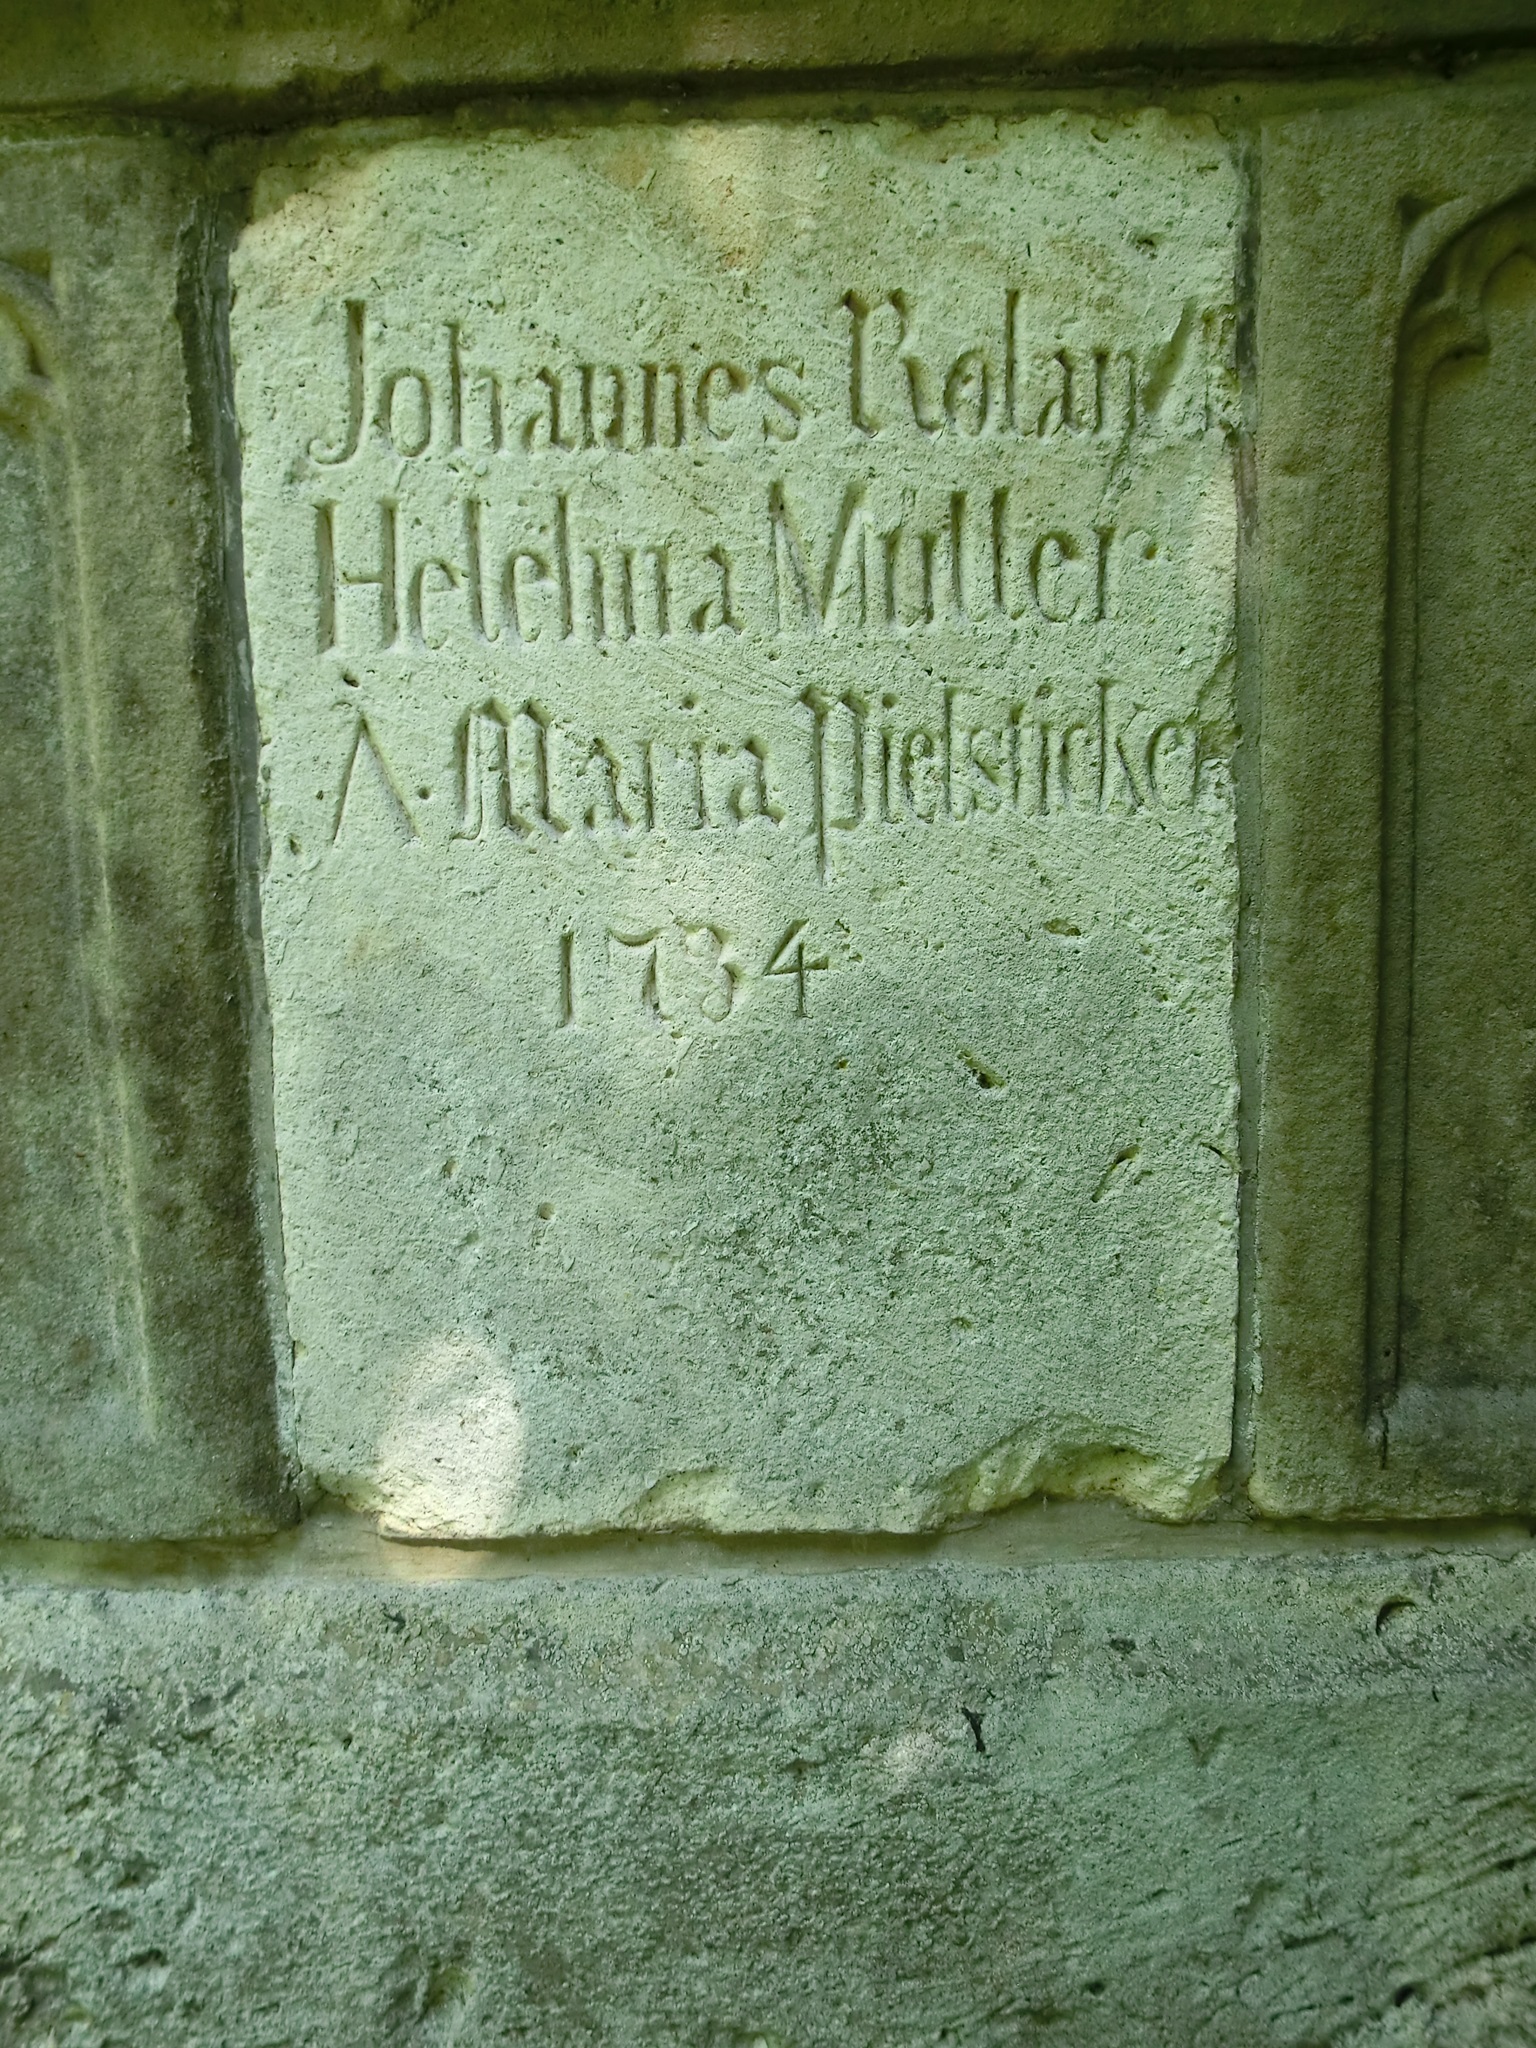 Johannes Roland
Helelnna Muller
A. Maria Pielsticker
1734